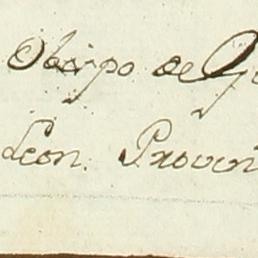 Obispo de
Leon. Provin